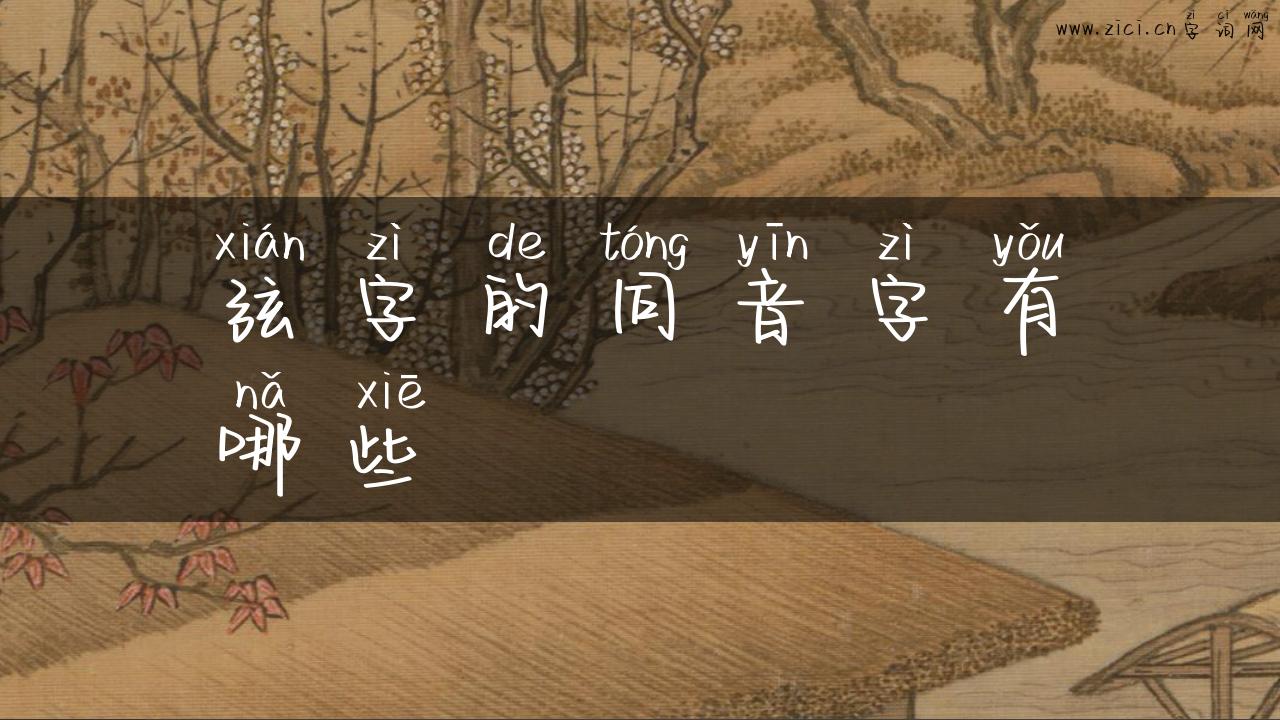 zì cí wǎng
www.zici.cn字词网
xián zì de tóng yīn zì yǒu
弦字的同音字有
nǎ xiē
哪些